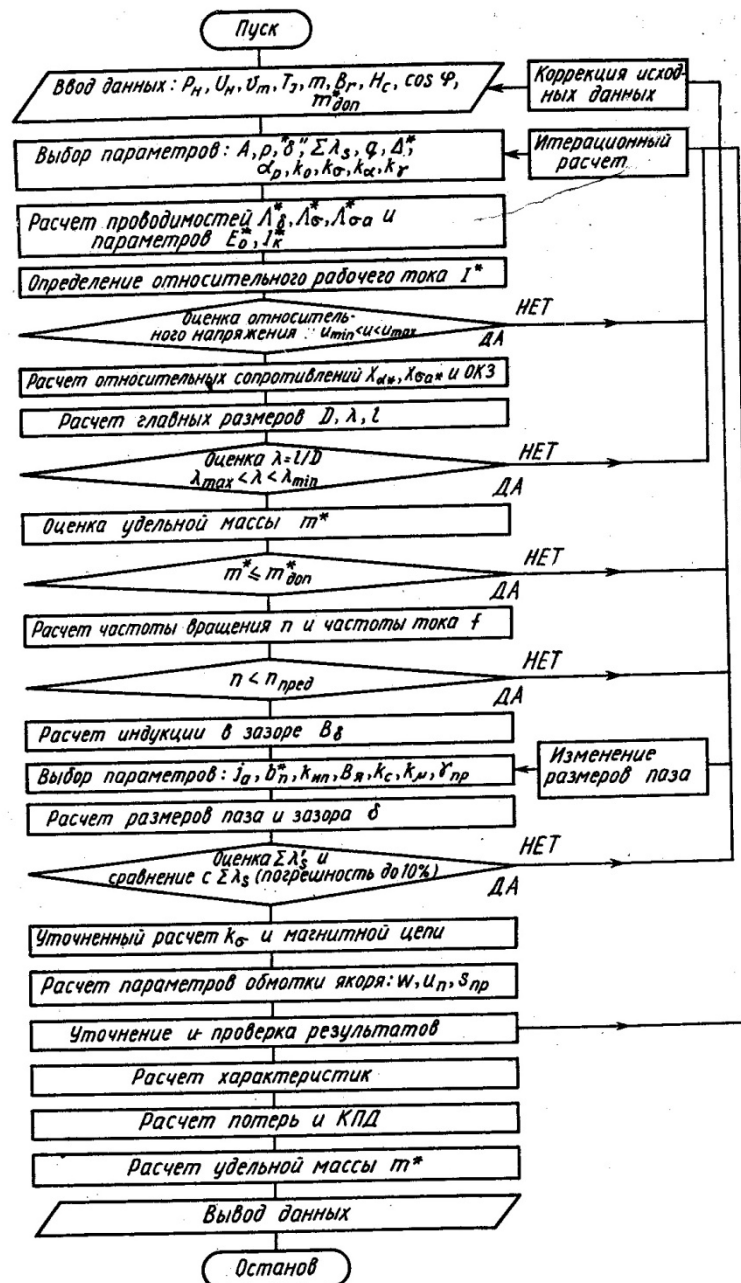 Пуск
Ввод данных: Pн, Uн, υm, TЭ, m, Br, Hc, cos φ,
m*доп
Коррекция исход-
ных данных
Выбор параметров: A, p, "δ", Σλs, q, Δ*,
αp, k0, kσ, kα, kγ
Итерационный
расчет
Расчет проводимостей Λ*δ, Λ*σ, Λ*σa и
параметров E*0, I*к
Определение относительного рабочего тока I*
Оценка относитель-
ного напряжения: umin<u<umax
НЕТ
ДА
Расчет относительных сопротивлений Xd*, Xσa* и ОКЗ
Расчет главных размеров D, λ, l
Оценка λ=l/D
λmax<λ<λmin
НЕТ
ДА
Оценка удельной массы m*
m*≤m*доп
НЕТ
ДА
Расчет частоты вращения n и частоты тока f
n < nпред
НЕТ
ДА
Расчет индукции в зазоре Bδ
Выбор параметров: ja, b*п, kип, Bя, kc, kμ, γпр
Изменение
размеров паза
Расчет размеров паза и зазора δ
Оценка Σλ's и
сравнение с Σλs (погрешность до 10%)
НЕТ
ДА
Уточненный расчет kσ и магнитной цепи
Расчет параметров обмотки якоря: w, uп, sпр
Уточнение и проверка результатов
Расчет характеристик
Расчет потерь и КПД
Расчет удельной массы m*
Вывод данных
Останов